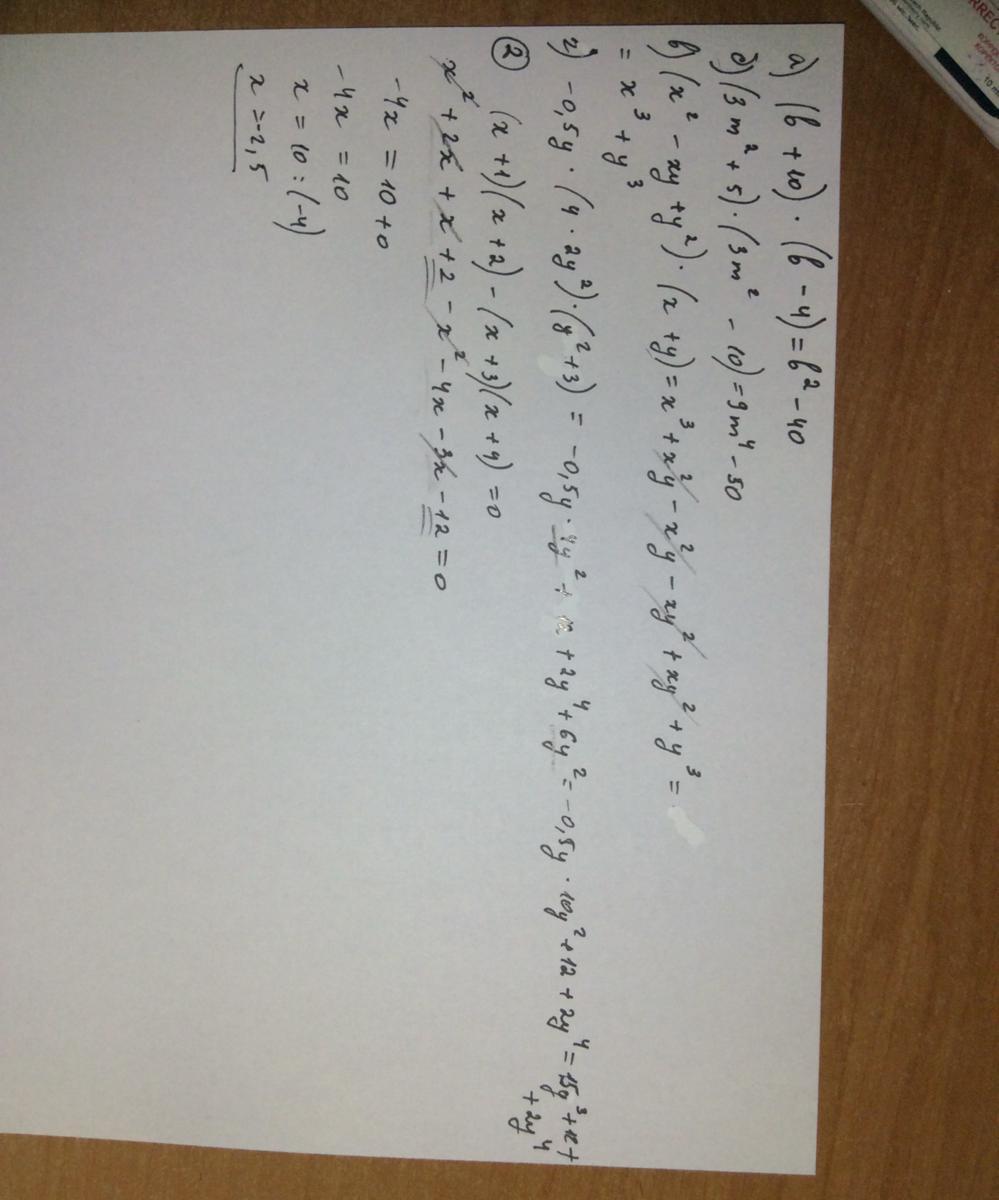 а) (b + 10) · (b - 4) = b² - 40
б) (3m² + 5) · (3m² - 10) = 9m⁴ - 50
в) (x² - xy + y²) · (x + y) = x³ + x²y - x²y - xy² + xy² + y³ =
= x³ + y³
г) -0,5y · (4 · 2y²) · (y² + 3) = -0,5y · 4y² + 12 + 2y⁴ + 6y² = -0,5y · 10y² + 12 + 2y⁴ = 15y³ + 12 +
+ 2y⁴
② (x + 1)(x + 2) - (x + 3)(x + 4) = 0
x² + 2x + x + 2 - x² - 4x - 3x - 12 = 0
-4x = 10 + 0
-4x = 10
x = 10 : (-4)
x = -2,5
10 m